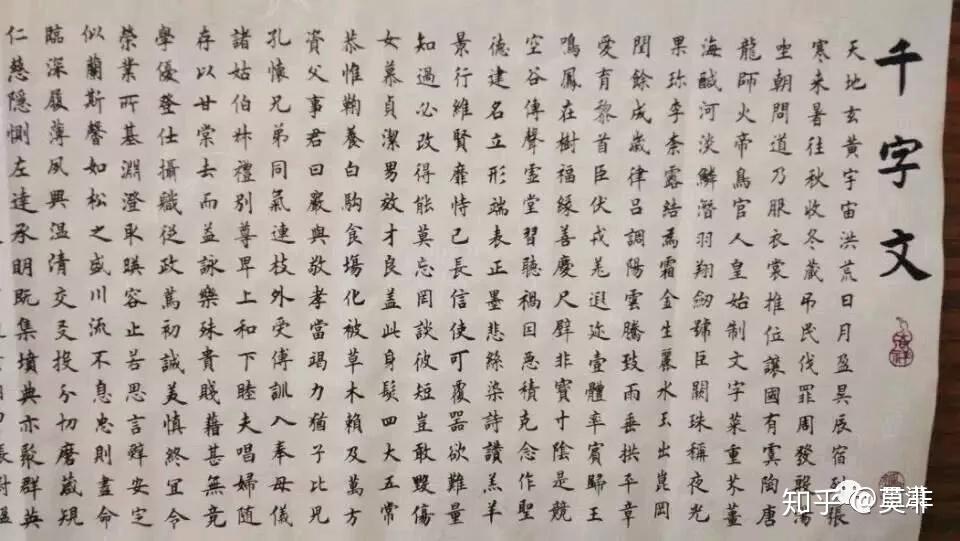 千字文
天地玄黄宇宙洪荒日月盈昃辰宿列張
寒来暑往秋收冬藏吊民伐罪周發殷湯
坐朝問道乃服衣裳推位讓國有虞陶唐
龍師火帝鳥官人皇始制文字菜重芥薑
海醎河淡鱗潛羽翔劍號巨闕珠稱夜光
果珍李柰露結爲霜金生麗水玉出崑岡
閏餘成歲律呂調陽雲騰致雨垂拱平章
愛育黎首臣伏戎羌遐迩壹體率賓歸王
鳴鳳在樹福緣善慶尺璧非寶寸陰是競
空谷傳聲虛堂習聽禍因惡積克念作聖
德建名立形端表正墨悲絲染詩讚羔羊
景行維賢靡恃己長信使可覆器欲難量
知過必改得能莫忘罔談彼短豈敢毁傷
女慕貞潔男效才良盖此身髮四大五常
恭惟鞠養白駒食場化被草木賴及萬方
資父事君曰嚴與敬孝當竭力猶子比兒
孔懷兄弟同氣連枝外受傅訓入奉母儀
諸姑伯叔禮別尊卑上和下睦夫唱婦隨
存以甘棠去而益詠樂殊貴賤藉甚無竟
學優登仕攝職從政篤初誠美慎終宜令
榮業所基淵澄取暎容止若思言辭安定
似蘭斯馨如松之盛川流不息忠則盡命
臨深履薄夙興温清交友投分切磨箴規
仁慈隱惻左達承明既集墳典亦聚群英
知乎